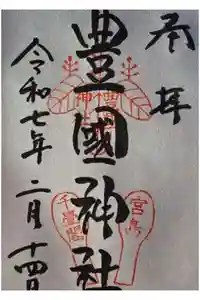 奉拝
豊國神社
千畳閣
宮島
令和七年二月十四日